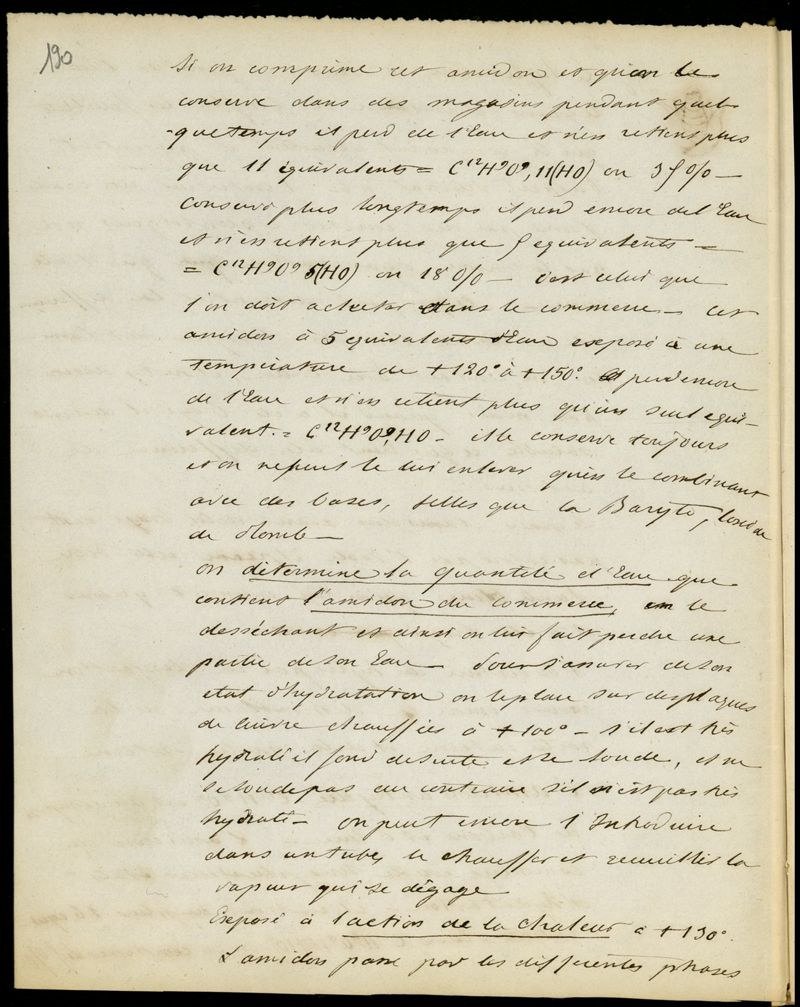 190
Si on comprime cet amidon et qu'on le
conserve dans des magasins pendant quel-
-que temps il perd de l'Eau et n'en retient plus
que 11 équivalents = C¹²H⁹O⁹, 11(HO) ou 35 0/0 —
conservé plus longtemps il perd encore de l'Eau
et n'en retient plus que 5 equivalents =
= C¹²H⁹O⁹ 5(HO) ou 18 0/0 — c'est celui que
l'on doit acheter dans le commerce — cet
amidon à 5 equivalents d'Eau exposé à une
température de +120° à +150° perd encore
de l'Eau et n'en retient plus qu'un seul equi-
valent. = C¹²H⁹O⁹, HO — il le conserve toujours
et on ne peut le lui enlever qu'en le combinant
avec des bases, telles que la Baryte, l'oxide
de Plomb —
on détermine la quantité d'Eau que
contient l'amidon du commerce, en le
desséchant et ainsi on lui fait perdre une
partie de son Eau — Pour s'assurer de son
etat d'hydratation on le place sur des plaques
de cuivre chauffées à +100° — s'il est très
hydraté il fond de suite et se soude, et ne
se soude pas au contraire s'il n'est pas très
hydraté — on peut encore l'Introduire
dans un tube, le chauffer et recueillir la
vapeur qui se dégage
Exposé à l'action de la chaleur à +130°
L'amidon passe par les differentes phases